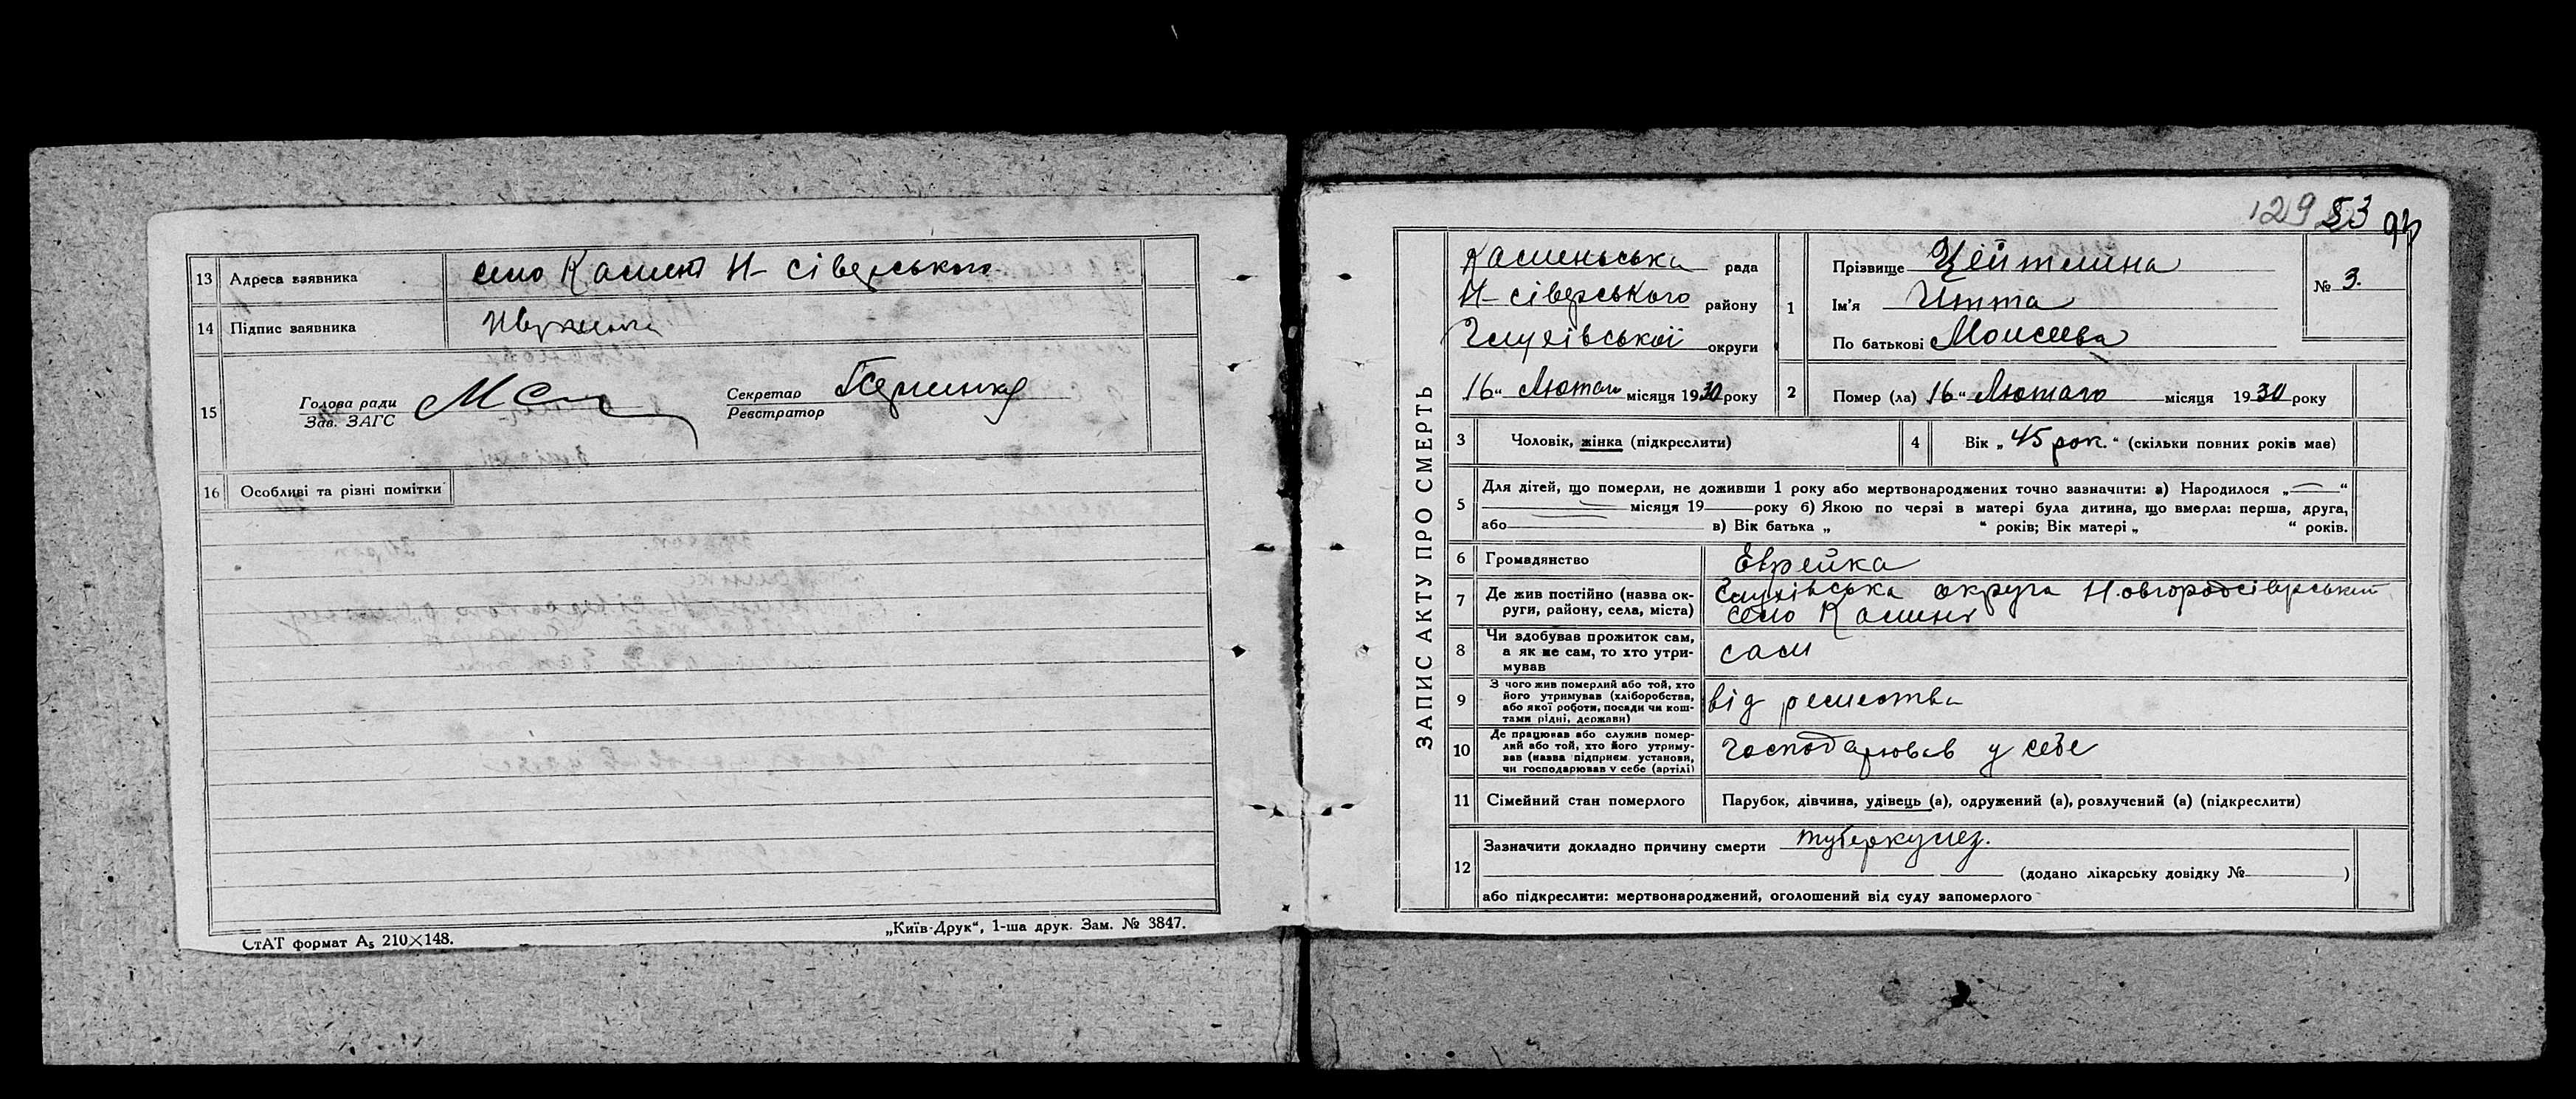 13 Адреса заявника село Камень Н-сіверського
14 Підпис заявника
15 Голова ради
Зав. ЗАГС
Секретар
Реєстратор
16 Особливі та різні помітки
СтАТ формат А5 210×148.
„Київ-Друк“, 1-ша друк. Зам. № 3847.
129 53
ЗАПИС АКТУ ПРО СМЕРТЬ
Каменьська рада
Н-сіверського району
Глухівської округи
16 “ Лютого місяця 1930 року
1 Прізвище Цейтлина
Ім’я Итта
По батькові Моисеева
№ 3.
2 Помер (ла) 16 “ Лютого місяця 1930 року
3 Чоловік, жінка (підкреслити)
4 Вік „ 45 рок. “ (скільки повних років має)
5 Для дітей, що померли, не доживши 1 року або мертвонароджених точно зазначити: а) Народилося „ — “
місяця 19 року б) Якою по черзі в матері була дитина, що вмерла: перша, друга,
або в) Вік батька „ “ років; Вік матері „ “ років.
6 Громадянство Еврейка
7 Де жив постійно (назва ок-
руги, району, села, міста) Глухівська округа Н.овгородсіверський
село Камень
8 Чи здобував прожиток сам,
а як не сам, то хто утри-
мував сам
9 З чого жив померлий або той, хто
його утримував (хліборобства,
або якої роботи, посади чи кош-
тами рідні, держави) від ремества
10 Де працював або служив помер-
лий або той, хто його утриму-
вав (назва підприєм. установи,
чи господарював у себе (артілі) Господарював у себе
11 Сімейний стан померлого Парубок, дівчина, удівець (а), одружений (а), розлучений (а) (підкреслити)
12 Зазначити докладно причину смерти туберкулез.
(додано лікарську довідку № )
або підкреслити: мертвонароджений, оголошений від суду запомерлого